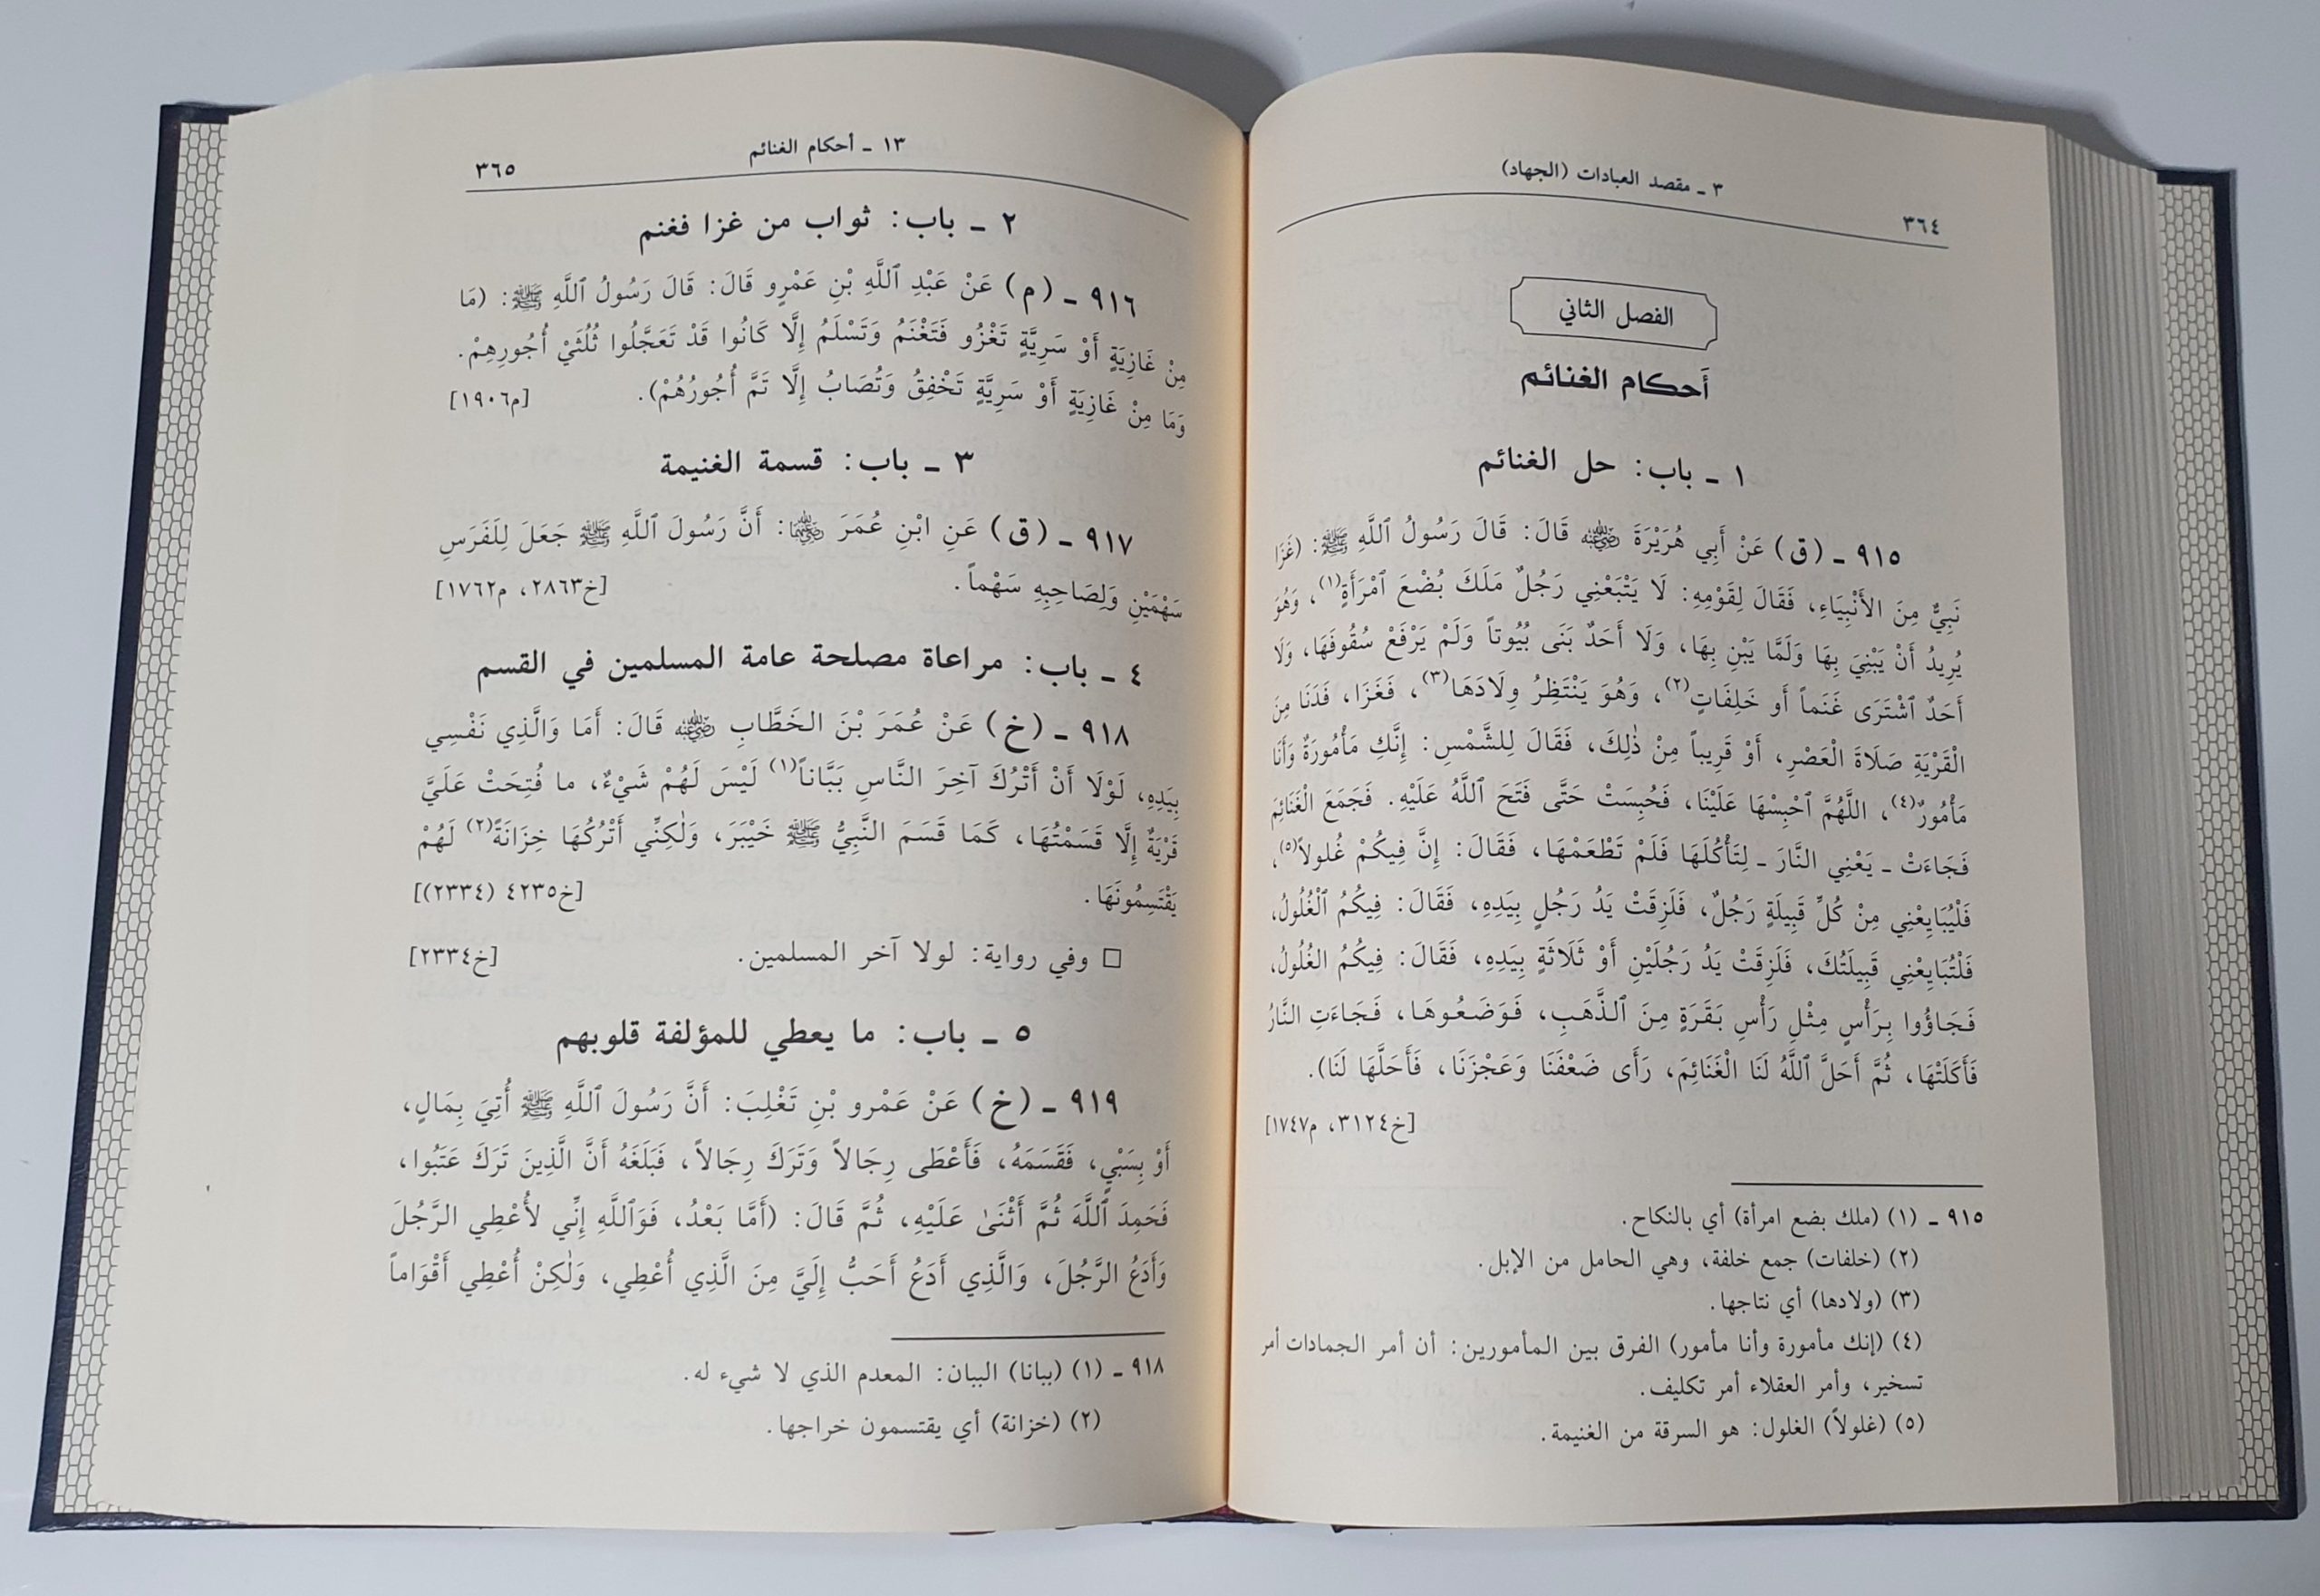 ٣ ـ مقصد العبادات (الجهاد)
٣٦٤
الفصل الثاني
أَحكام الغنائم
١ ـ باب: حل الغنائم
٩١٥ ـ (ق) عَنْ أَبِي هُرَيْرَةَ رضي الله عنه قَالَ: قَالَ رَسُولُ ٱللَّهِ ﷺ: (غَزَا
نَبِيٌّ مِنَ الأَنْبِيَاءِ، فَقَالَ لِقَوْمِهِ: لَا يَتْبَعْنِي رَجُلٌ مَلَكَ بُضْعَ ٱمْرَأَةٍ(١)، وَهُوَ
يُرِيدُ أَنْ يَبْنِيَ بِهَا وَلَمَّا يَبْنِ بِهَا، وَلَا أَحَدٌ بَنَى بُيُوتاً وَلَمْ يَرْفَعْ سُقُوفَهَا، وَلَا
أَحَدٌ ٱشْتَرَى غَنَماً أَو خَلِفَاتٍ(٢)، وَهُوَ يَنْتَظِرُ وِلَادَهَا(٣)، فَغَزَا، فَدَنَا مِنَ
الْقَرْيَةِ صَلَاةَ الْعَصْرِ، أَوْ قَرِيباً مِنْ ذٰلِكَ، فَقَالَ لِلشَّمْسِ: إِنَّكِ مَأْمُورَةٌ وَأَنَا
مَأْمُورٌ(٤)، اللَّهُمَّ ٱحْبِسْهَا عَلَيْنَا، فَحُبِسَتْ حَتَّى فَتَحَ ٱللَّهُ عَلَيْهِ. فَجَمَعَ الْغَنَائِمَ
فَجَاءَتْ ـ يَعْنِي النَّارَ ـ لِتَأْكُلَهَا فَلَمْ تَطْعَمْهَا، فَقَالَ: إِنَّ فِيكُمْ غُلولاً(٥)،
فَلْيُبَايِعْنِي مِنْ كُلِّ قَبِيلَةٍ رَجُلٌ، فَلَزِقَتْ يَدُ رَجُلٍ بِيَدِهِ، فَقَالَ: فِيكُمُ ٱلْغُلُولُ،
فَلْتُبَايِعْنِي قَبِيلَتُكَ، فَلَزِقَتْ يَدُ رَجُلَيْنِ أَوْ ثَلَاثَةٍ بِيَدِهِ، فَقَالَ: فِيكُمُ الغُلُولُ،
فَجَاؤُوا بِرَأْسٍ مِثْلِ رَأْسِ بَقَرَةٍ مِنَ ٱلذَّهَبِ، فَوَضَعُوهَا، فَجَاءَتِ النَّارُ
فَأَكَلَتْهَا، ثُمَّ أَحَلَّ ٱللَّهُ لَنَا الْغَنَائِمَ، رَأَى ضَعْفَنَا وَعَجْزَنَا، فَأَحَلَّهَا لَنَا).
[خ٣١٢٤، م١٧٤٧]
٩١٥ ـ (١) (ملك بضع امرأة) أي بالنكاح.
(٢) (خلفات) جمع خلفة، وهي الحامل من الإبل.
(٣) (ولادها) أي نتاجها.
(٤) (إنك مأمورة وأنا مأمور) الفرق بين المأمورين: أن أمر الجمادات أمر
تسخير، وأمر العقلاء أمر تكليف.
(٥) (غلولاً) الغلول: هو السرقة من الغنيمة.
١٣ ـ أحكام الغنائم
٣٦٥
٢ ـ باب: ثواب من غزا فغنم
٩١٦ ـ (م) عَنْ عَبْدِ ٱللَّهِ بْنِ عَمْرٍو قَالَ: قَالَ رَسُولُ ٱللَّهِ ﷺ: (مَا
مِنْ غَازِيَةٍ أَوْ سَرِيَّةٍ تَغْزُو فَتَغْنَمُ وَتَسْلَمُ إِلَّا كَانُوا قَدْ تَعَجَّلُوا ثُلُثَيْ أُجُورِهِمْ.
وَمَا مِنْ غَازِيَةٍ أَوْ سَرِيَّةٍ تَخْفِقُ وَتُصَابُ إِلَّا تَمَّ أُجُورُهُمْ). [م١٩٠٦]
٣ ـ باب: قسمة الغنيمة
٩١٧ ـ (ق) عَنِ ابْنِ عُمَرَ رضي الله عنهما: أَنَّ رَسُولَ ٱللَّهِ ﷺ جَعَلَ لِلْفَرَسِ
سَهْمَيْنِ وَلِصَاحِبِهِ سَهْماً. [خ٢٨٦٣، م١٧٦٢]
٤ ـ باب: مراعاة مصلحة عامة المسلمين في القسم
٩١٨ ـ (خ) عَنْ عُمَرَ بْنَ الخَطَّابِ رضي الله عنه قَالَ: أَمَا وَالَّذِي نَفْسِي
بِيَدِهِ، لَوْلَا أَنْ أَتْرُكَ آخِرَ النَّاسِ بَبَّاناً(١) لَيْسَ لَهُمْ شَيْءٌ، ما فُتِحَتْ عَلَيَّ
قَرْيَةٌ إِلَّا قَسَمْتُهَا، كَمَا قَسَمَ النَّبِيُّ ﷺ خَيْبَرَ، وَلٰكِنِّي أَتْرُكُهَا خِزَانَةً(٢) لَهُمْ
يَقْتَسِمُونَهَا. [خ٤٢٣٥ (٢٣٣٤)]
□ وفي رواية: لولا آخر المسلمين. [خ٢٣٣٤]
٥ ـ باب: ما يعطي للمؤلفة قلوبهم
٩١٩ ـ (خ) عَنْ عَمْرِو بْنِ تَغْلِبَ: أَنَّ رَسُولَ ٱللَّهِ ﷺ أُتِيَ بِمَالٍ،
أَوْ بِسَبْيٍ، فَقَسَمَهُ، فَأَعْطَى رِجَالاً وَتَرَكَ رِجَالاً، فَبَلَغَهُ أَنَّ الَّذِينَ تَرَكَ عَتَبُوا،
فَحَمِدَ ٱللَّهَ ثُمَّ أَثْنَىٰ عَلَيْهِ، ثُمَّ قَالَ: (أَمَّا بَعْدُ، فَوَٱللَّهِ إِنِّي لأُعْطِي الرَّجُلَ
وَأَدَعُ الرَّجُلَ، وَالَّذِي أَدَعُ أَحَبُّ إِلَيَّ مِنَ الَّذِي أُعْطِي، وَلٰكِنْ أُعْطِي أَقْوَاماً
٩١٨ ـ (١) (ببانا) الببان: المعدم الذي لا شيء له.
(٢) (خزانة) أي يقتسمون خراجها.